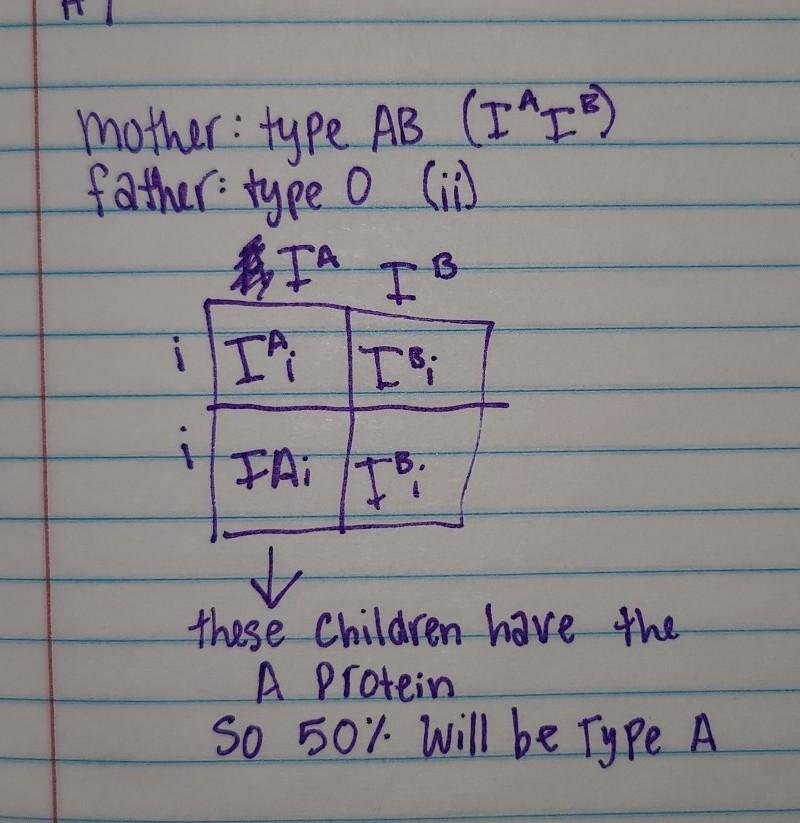 Mother: type AB (IᴬIᴮ)
father: type O (ii)
Iᴬ Iᴮ
i Iᴬi Iᴮi
i IAi Iᴮi
↓
these Children have the
A Protein
So 50% Will be Type A